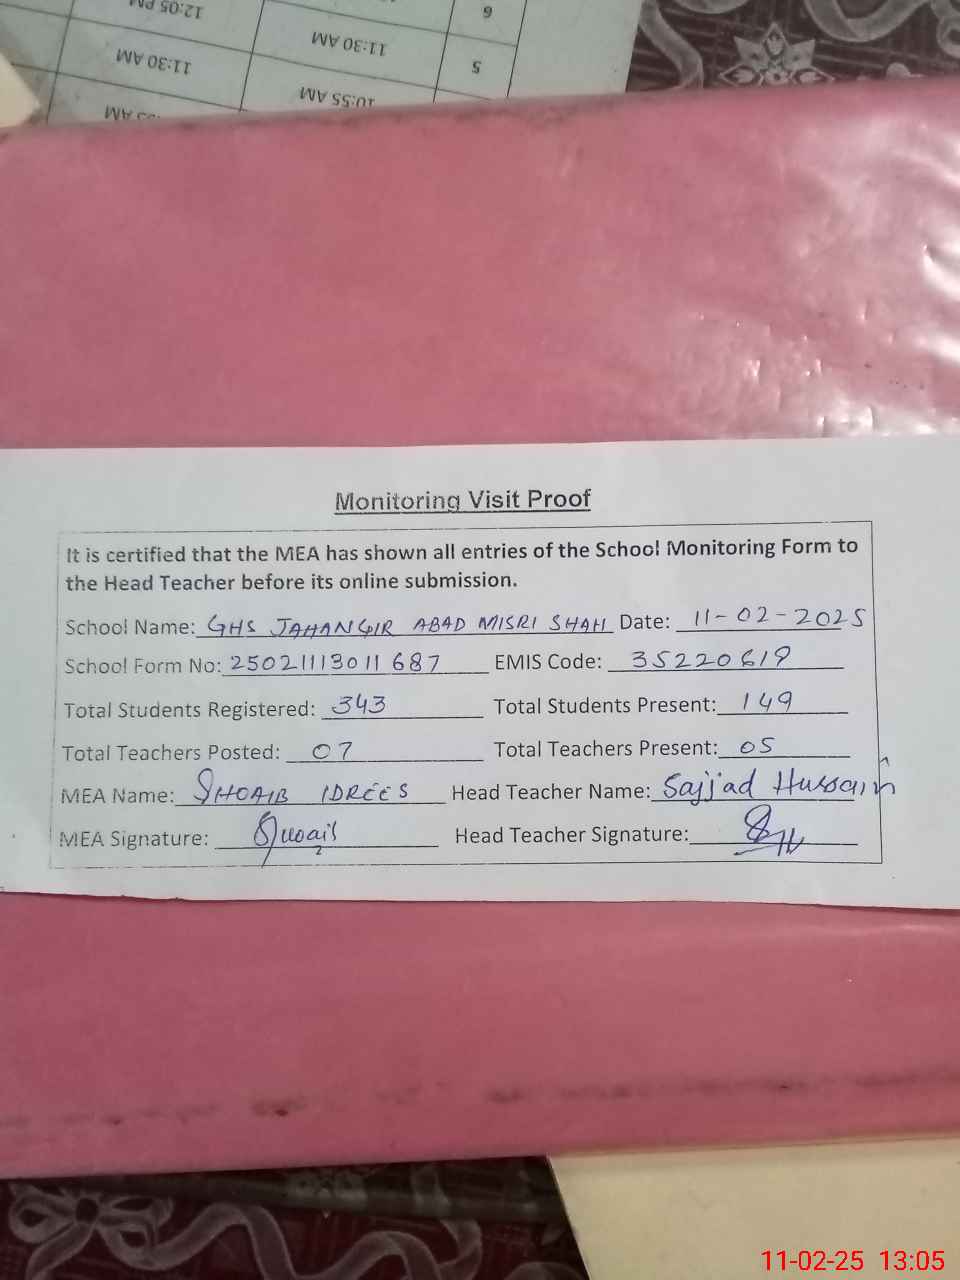 12:05 PM
6
11:30 AM
11:30 AM
5
10:55 AM
AM
Monitoring Visit Proof
It is certified that the MEA has shown all entries of the School Monitoring Form to
the Head Teacher before its online submission.
School Name: GHS JAHANGIR ABAD MISRI SHAH Date: 11-02-2025
School Form No: 25021113011687 EMIS Code: 35220619
Total Students Registered: 343 Total Students Present: 149
Total Teachers Posted: 07 Total Teachers Present: 05
MEA Name: SHOAIB IDREES Head Teacher Name: Sajjad Hussain
MEA Signature: Shoaib Head Teacher Signature:
11-02-25 13:05